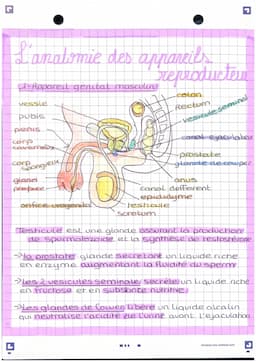 L'anatomie des appareils
reproducteur
1-Appareil génital masculin
vessie
pubis
pénis
corp
caverneux
corp
spongieux
gland
prépuce
orifice urogénital
colon
Rectum
vésicule séminale
canal éjaculateur
prostate
glande de cowper
anus
canal déférent
épididyme
testicule
scrotum
Testicule est une glande assurant la production
de spermatozoïde et la synthèse de testostérone
→ la prostate glande secrétant un liquide riche
en enzyme augmentant la fluidité du sperm
→ les 2 vésicules séminale secrète un liquide riche
en fructose et en substance nutritive
→ Les glandes de cowes libère un liquide alcalin
qui neutralise l'acidité de l'urine avant l'ejaculation